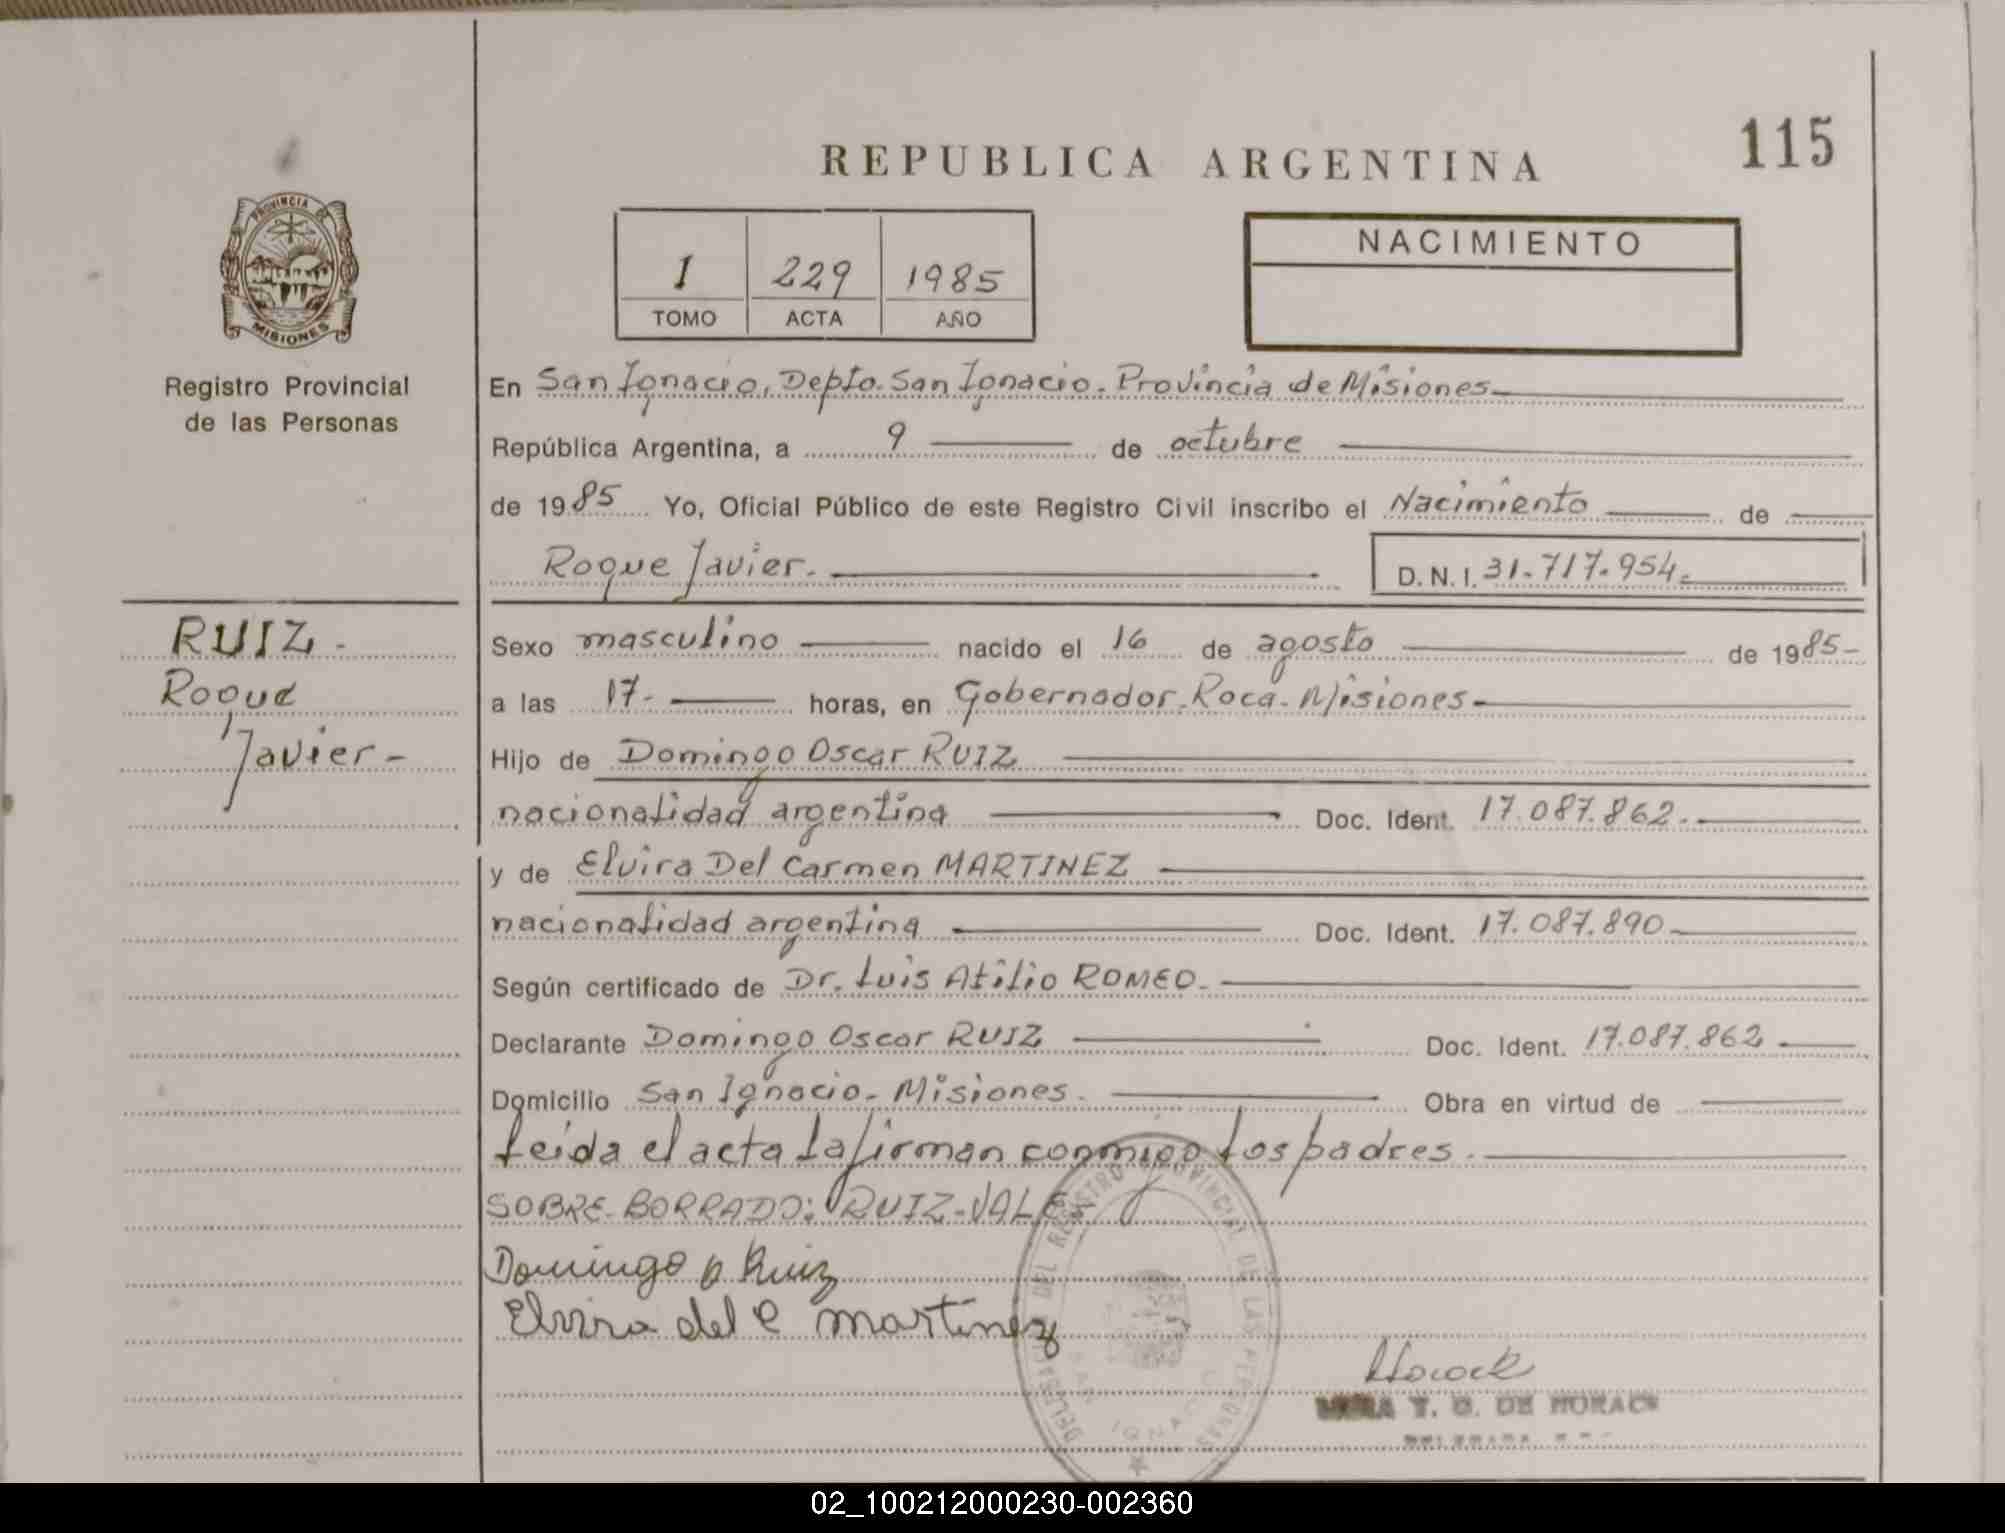 115
REPUBLICA ARGENTINA
PROVINCIA DE
MISIONES
Registro Provincial
de las Personas
1 229 1985
TOMO ACTA AÑO
NACIMIENTO
En San Ignacio, Depto. San Ignacio. Provincia de Misiones
República Argentina, a 9 de octubre
de 1985 Yo, Oficial Público de este Registro Civil inscribo el Nacimiento de
Roque Javier. D.N.I. 31.717.954.
RUIZ -
Roque
Javier -
Sexo masculino nacido el 16 de agosto de 1985-
a las 17- horas, en Gobernador Roca - Misiones
Hijo de Domingo Oscar RUIZ
nacionalidad argentina Doc. Ident. 17.087.862.
y de Elvira Del Carmen MARTINEZ
nacionalidad argentina Doc. Ident. 17.087.890
Según certificado de Dr. Luis Atilio ROMEO.
Declarante Domingo Oscar RUIZ Doc. Ident. 17.087.862
Domicilio San Ignacio - Misiones. Obra en virtud de
Leida el acta la firman conmigo los padres.
SOBRE-BORRADO: RUIZ-VALE
Domingo O Ruiz
Elvira del C Martinez
DELEGACION DEL REGISTRO PROVINCIAL DE LAS PERSONAS
SAN IGNACIO
Y. G. DE HORACK
02_100212000230-002360